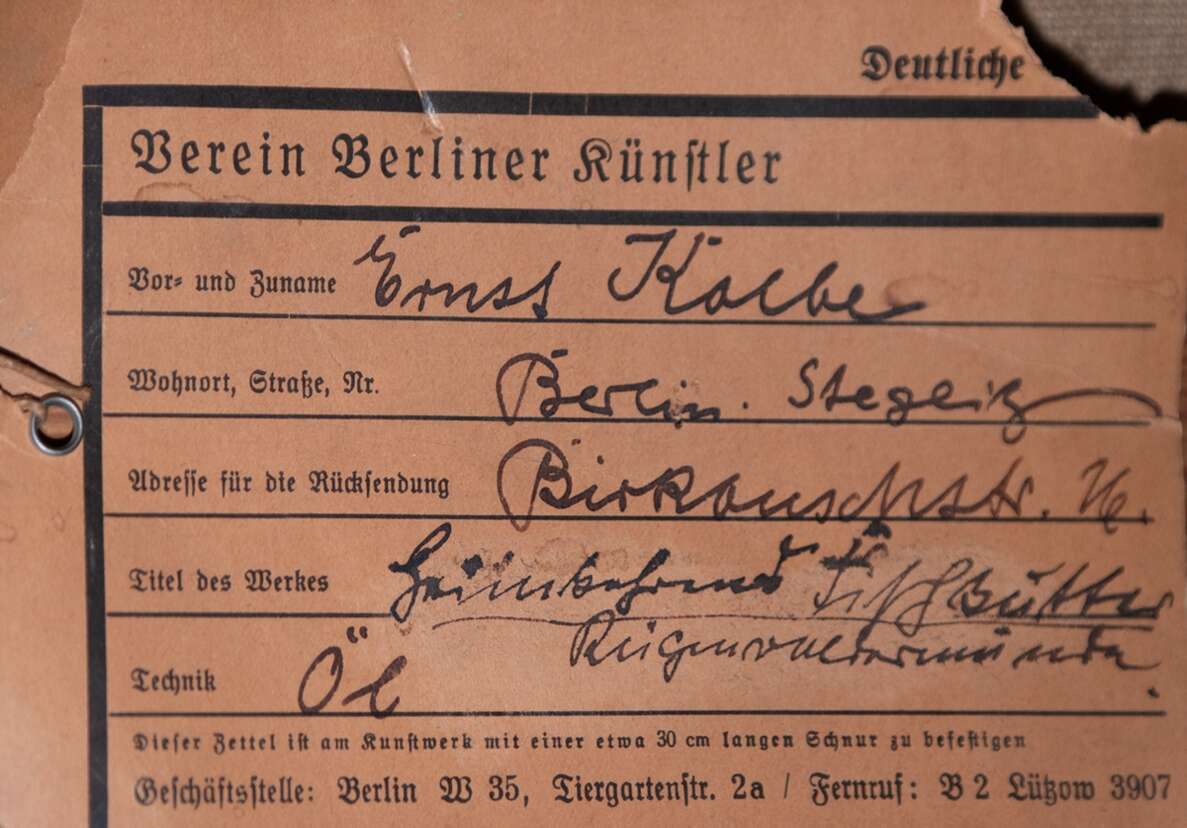 Deutliche
Verein Berliner Künstler
Vor- und Zuname Ernst Kolbe
Wohnort, Straße, Nr. Berlin. Steglitz
Adresse für die Rücksendung Birkbuschstr.
Titel des Werkes Heimkehrend
Rügenwaldermünde.
Technik Öl
Dieser Zettel ist am Kunstwerk mit einer etwa 30 cm langen Schnur zu befestigen
Geschäftsstelle: Berlin W 35, Tiergartenstr. 2a / Fernruf: B 2 Lützow 3907